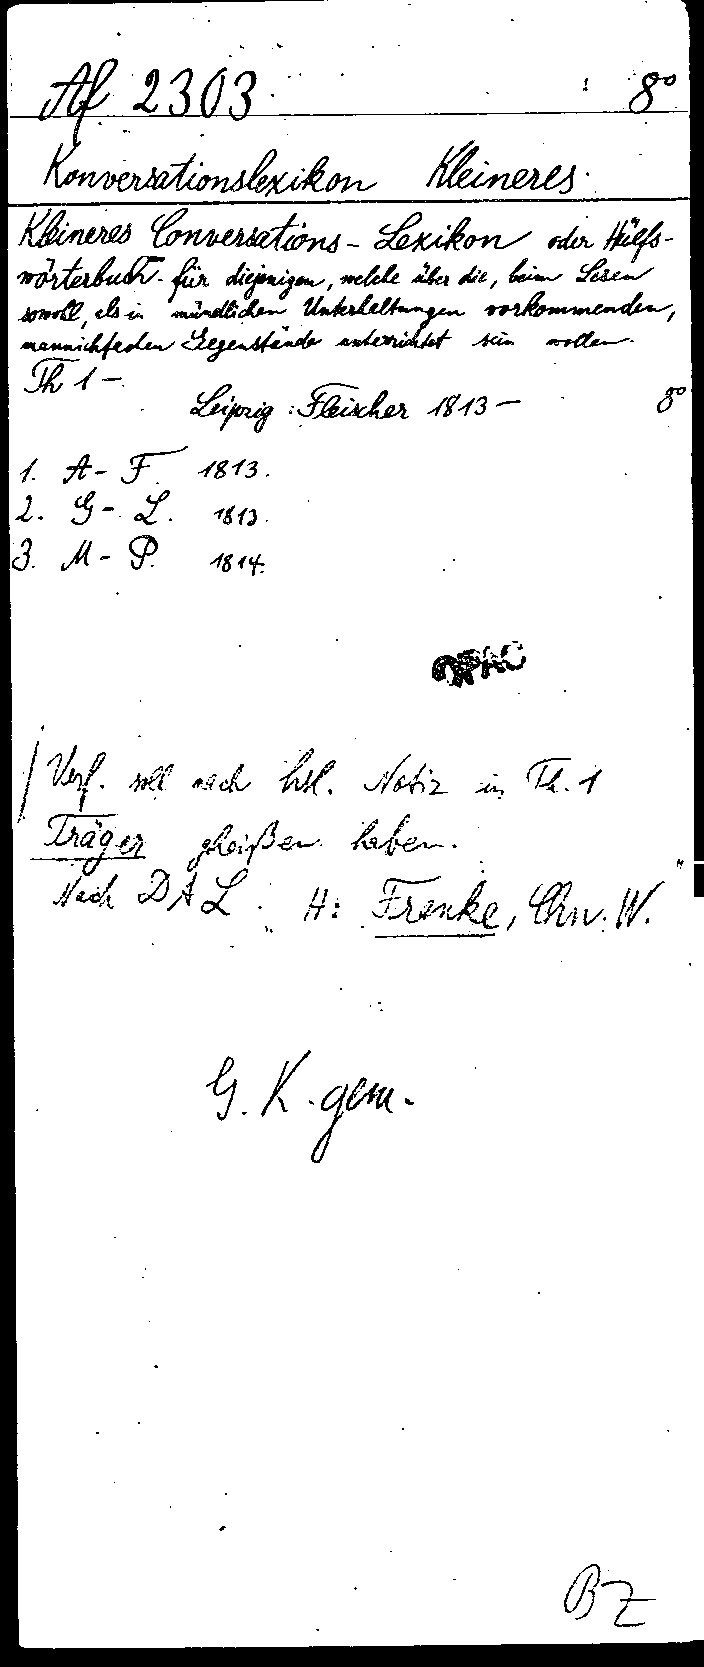 Af 2303 8°
Konversationslexikon Kleineres.
Kleineres Conversations-Lexikon oder Hülfs-
wörterbuch für diejenigen, welche über die, beim Lesen
sowohl, als in mündlichen Unterhaltungen vorkommenden,
mannichfachen Gegenstände unterrichtet sein wollen.
Th 1 -
Leipzig: Fleischer 1813 - 8°
1. A - F. 1813.
2. G - L. 1813.
3. M - P. 1814.
OPAC
Verf. soll nach hsl. Notiz in Th. 1
Träger geheißen haben.
Nach DAL. H: Frenke, Chn. W.
G. K. gem.
BZ